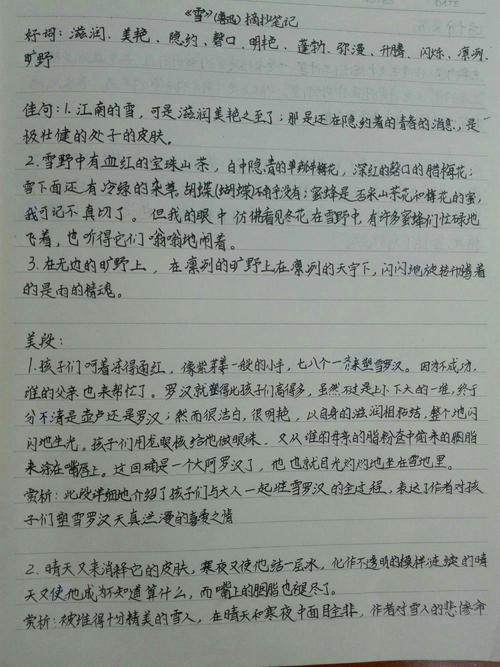 《雪》(鲁迅) 摘抄笔记
好词：滋润、美艳、隐约、磬口、明艳、蓬勃、弥漫、升腾、闪烁、凛冽、
旷野
佳句：1.江南的雪，可是滋润美艳之至了；那是还在隐约着的青春的消息，是
极壮健的处子的皮肤。
2.雪野中有血红的宝珠山茶，白中隐青的单瓣梅花，深红的磬口的腊梅花；
雪下面还有冷绿的杂草。胡蝶(蝴蝶)确乎没有；蜜蜂是否来山茶花和梅花的蜜，
我可记不真切了。但我的眼中仿佛看见冬花在雪野中，有许多蜜蜂们忙碌地
飞着，也听得它们嗡嗡地闹着。
3.在无边的旷野上，在凛冽的旷野上在凛冽的天宇下，闪闪地旋转升腾着
的是雨的精魂。
美段：
1.孩子们呵着冻得通红，像紫芽姜一般的小手，七八个一齐来塑雪罗汉。因为不成功，
谁的父亲也来帮忙了。罗汉就塑得比孩子们高得多，虽然不过是上小下大的一堆，终于
分不清是壶卢还是罗汉；然而很洁白，很明艳，以自身的滋润相粘结，整个地闪
闪地生光。孩子们用龙眼核给他做眼珠，又从谁的母亲的脂粉奁中偷来的胭脂
来涂在嘴唇上。这回确是一个大阿罗汉了，他也就目光灼灼地坐在雪地里。
赏析：此段详细地介绍了孩子们与大人一起堆雪罗汉的全过程，表达了作者对孩
子们塑雪罗汉天真浪漫的喜爱之情
2.晴天又来消释它的皮肤，寒夜又使他结一层冰，化作不透明的模样连续的晴
天又使他成不知道算什么，而嘴上的胭脂也褪尽了。
赏析：被堆得十分精美的雪人，在晴天和寒夜中面目全非，作者对雪人的悲惨命